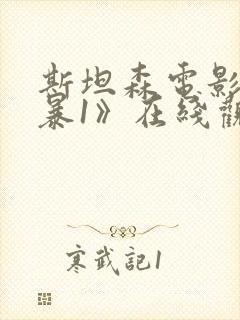 斯坦森電影
暴1》在綫觀
寒武記1